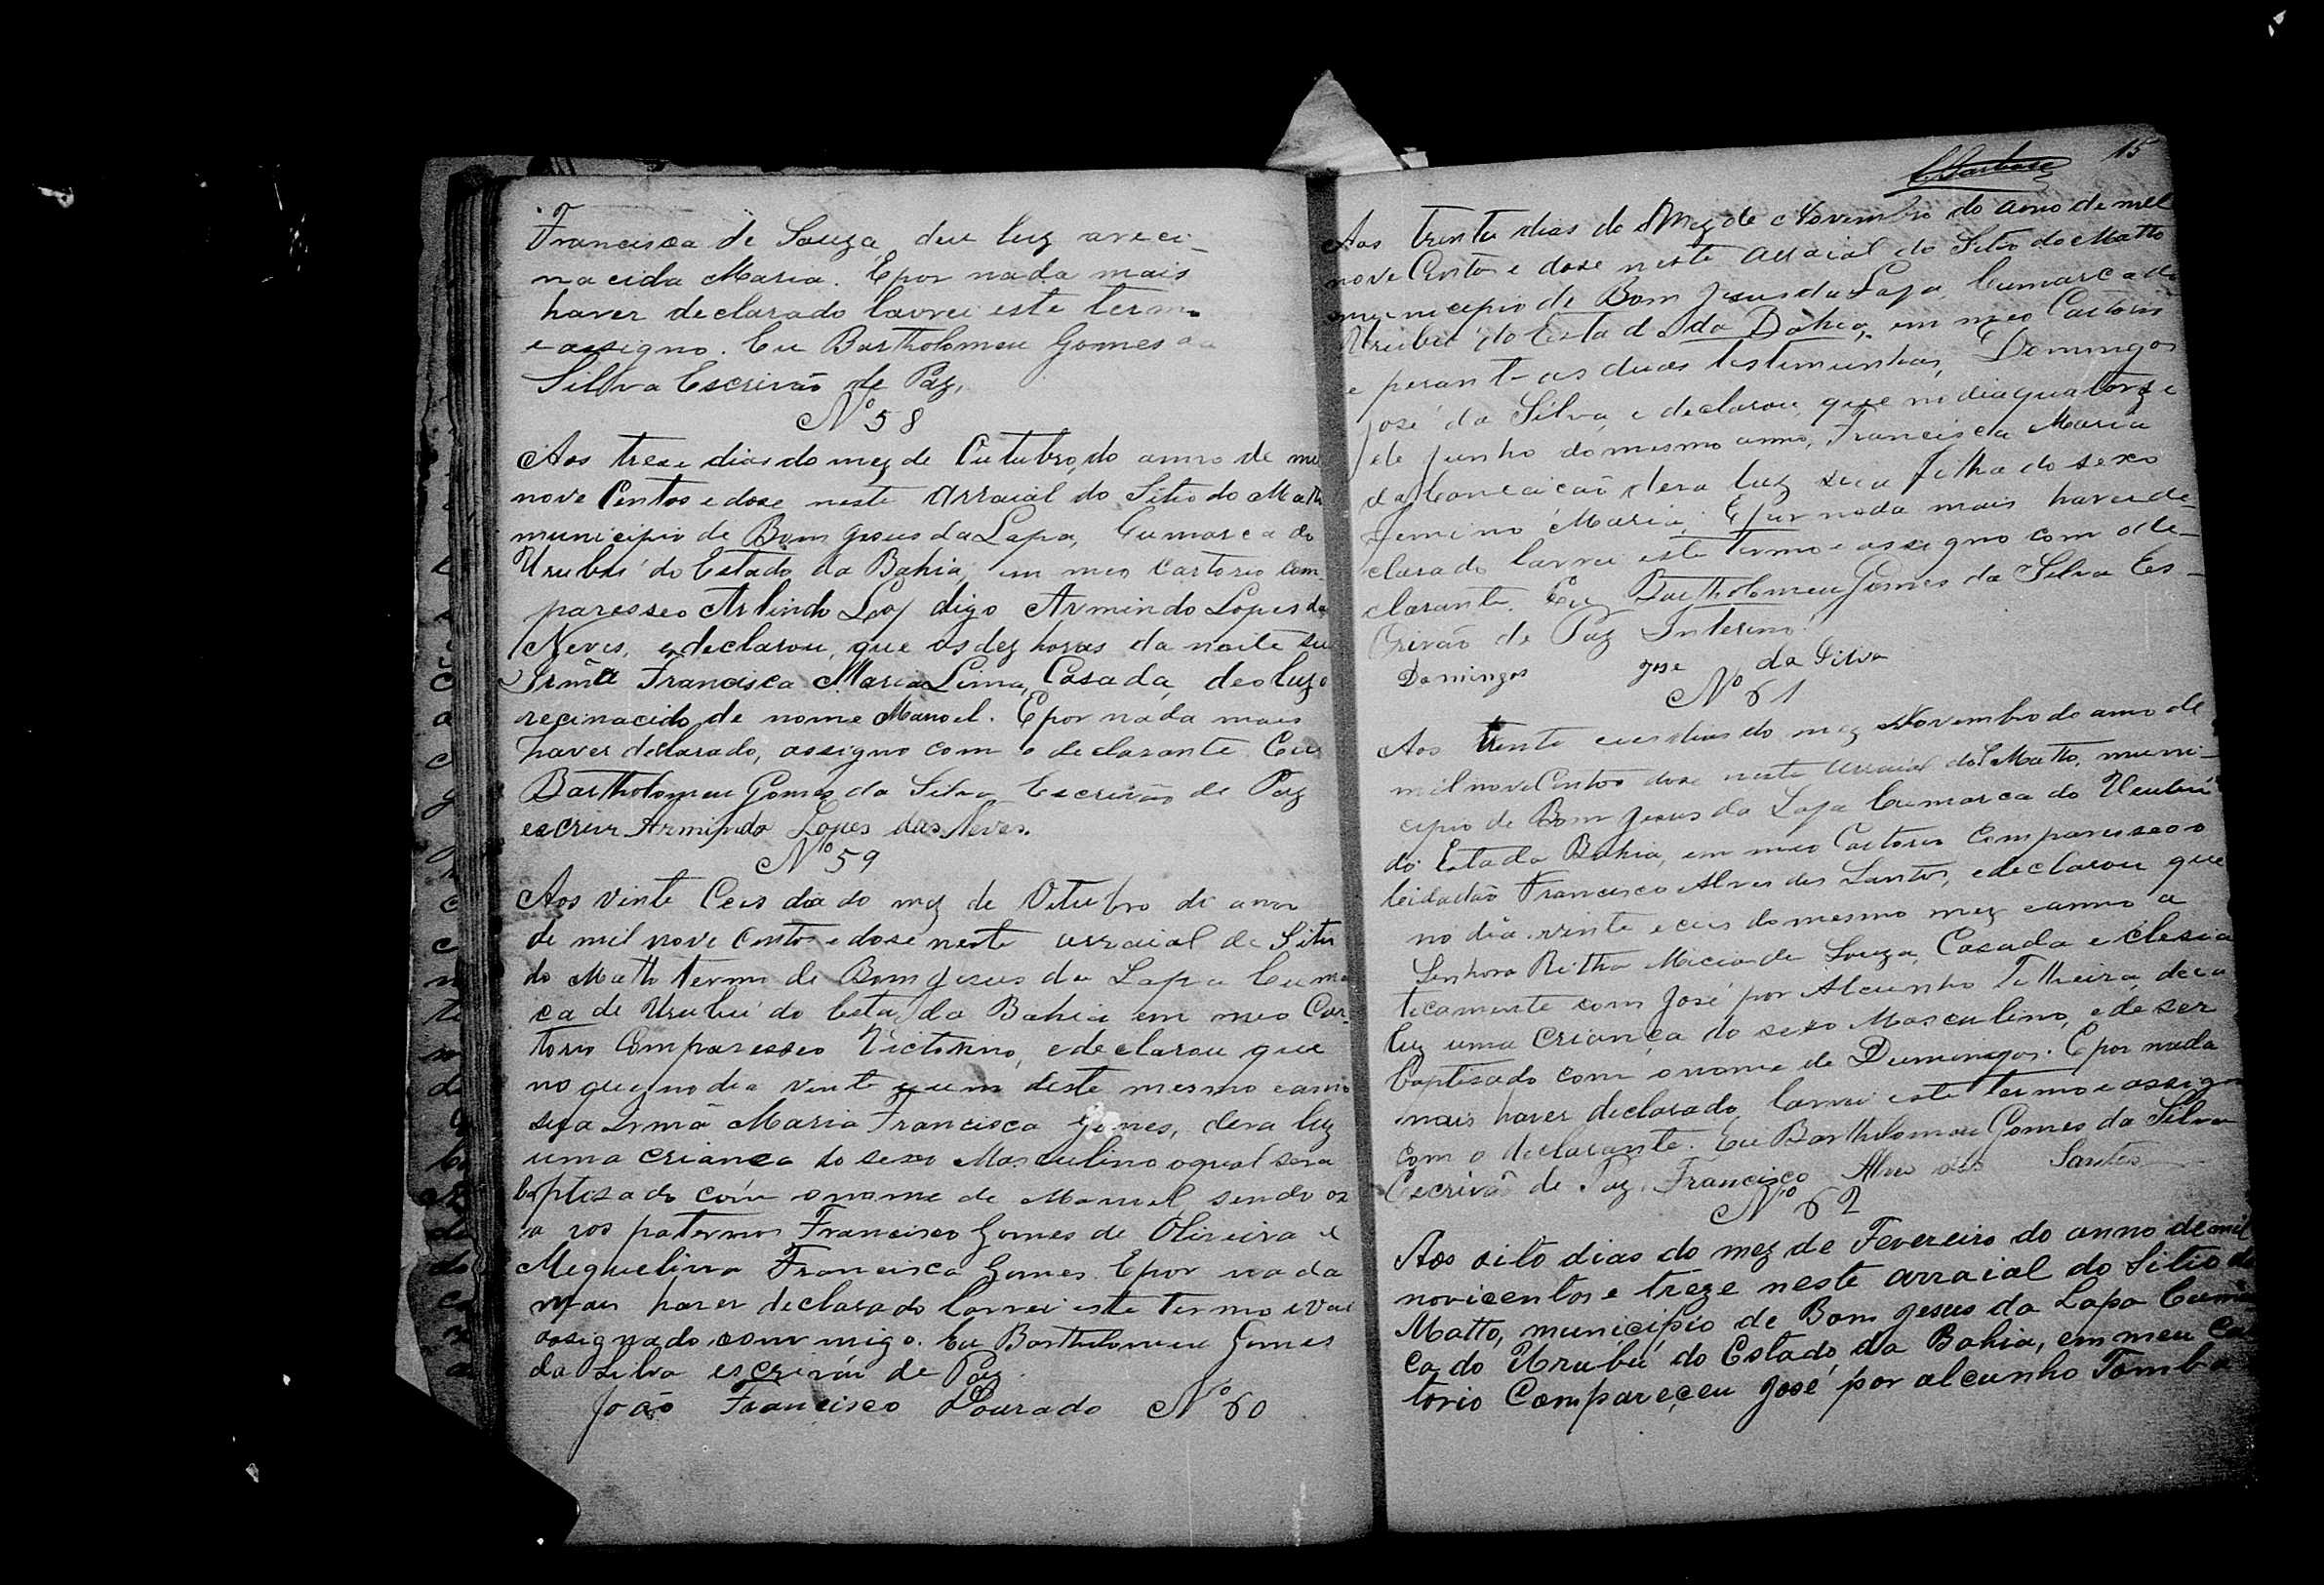 Francisca de Souza, deu luz a reci-
nacida Maria. E por nada mais
haver declarado lavrei este termo
e assigno. Eu Bartholomeu Gomes da
Silva Escrivão de Paz,
Nº 58
Aos trese dias do mez de Outubro, do anno de mil
nove Centos e dose neste Arraial do Sitio do Matto
municipio de Bom Jesus da Lapa, Cumarca do
Urubú do Estado da Bahia, em meo Cartorio com-
paresseo Arlindo Lop digo Armindo Lopes da
Neves, e declarou, que as dez horas da noite su
Irmã Francisca Maria Lima, Casada, deo luz o
recinacido de nome Manoel. E por nada mais
haver declarado, assigno com o declarante Eu
Bartholomeu Gomes da Silva Escrivão de Paz
escrivi Armindo Lopes das Neves.
Nº 59
Aos vinte Ceis dia do mez de Outubro do anno
de mil nove Centos e dose neste arraial de Sitio
do Matto termo de Bom Jesus da Lapa Cuma
ca de Urubú do Esta da Bahia em meo Car-
torio Comparesseo Victorino, e declarou que
no que no dia vinte e um deste mesmo e anno
sua Irmã Maria Francisca Gomes, dera luz
uma criança do sexo Masculino o qual sera
baptisado com o nome de Manoel, sendo os
a vos paternos Francisco Gomes de Oliveira e
Miquelina Francisca Gomes. E por nada
mais haver declarado lavrei este termo e vai
assignado commigo. Eu Bartholomeu Gomes
da Silva escrivão de Paz.
João Francisco Dourado Nº 60
15
Aos trinta dias do Mez de Novembro do anno de mil
nove Centos e dose neste arraial do Sitio do Matto
municipio de Bom Jesus da Lapa, Cumarca do
Urubú do Estado da Bahia, em meo Cartorio
e perante as duas testimunhas, Domingos
José da Silva, e declarou, que no dia quatorze
de Junho do mesmo anno, Francisca Maria
da Conceição dera luz sua filha do sexo
femino Maria. E por nada mais haver de-
clarado lavrei este termo e assigno com o de-
clarante. Eu Bartholomeu Gomes da Silva Es-
Crivão de Paz Interino.
Domingos Jose da Silva
Nº 61
Aos trinta dias do mez Novembro do anno de
mil nove Centos dose neste arraial do S. Matto, muni-
cipio de Bom Jesus da Lapa Cumarca do Urubú
do Estado Bahia, em meo Cartorio Comparesseo o
Cidadão Francisco Alves dos Santos, e declarou que
no dia vinte e ceis do mesmo mez e anno a
Senhora Ritha Micia de Souza, Casada e clesia
ticamente com José por Alcunho Telheira, deu a
luz uma Criança do sexo Masculino, e de ser
Baptisado com o nome de Dumingos. E por nada
mais haver declarado, lavrei este termo e assigno
com o declarante. Eu Bartholomeu Gomes da Silva
Escrivão de Paz. Francisco Alves dos Santos
Nº 62
Aos oito dias do mez de Fevereiro do anno de mil
novicentos e treze neste arraial do Sitio do
Matto, municipio de Bom Jesus da Lapa Cumar
ca do Urubú do Estado da Bahia, em meu Car
torio Compareçeu José por alcunho Tomba